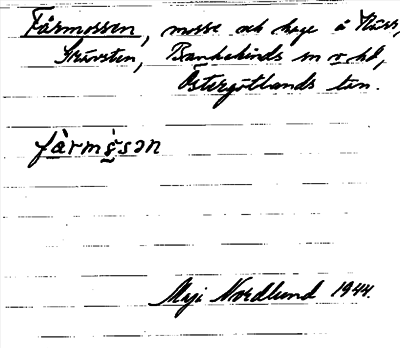 Fårmossen, mosse och hage å
Skärsten, Bankekinds sn o hd,
Östergötlands län.
fàrms̀sən
Maji Nordlund 1944.